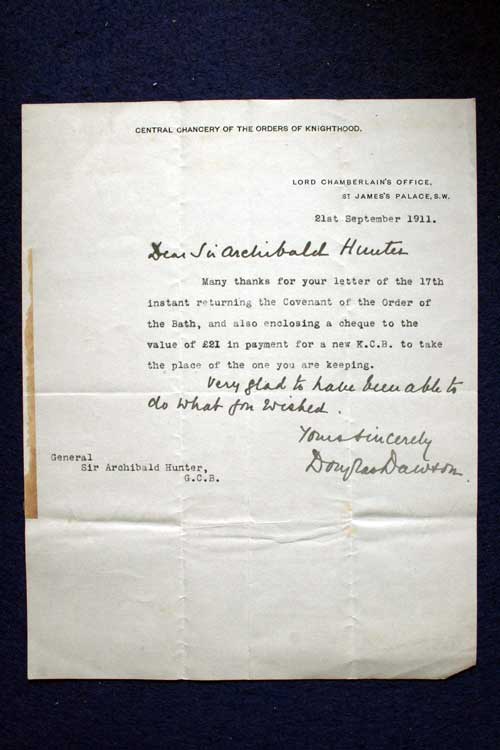 CENTRAL CHANCERY OF THE ORDERS OF KNIGHTHOOD.
LORD CHAMBERLAIN'S OFFICE,
ST JAMES'S PALACE, S.W.
21st September 1911.
Dear Sir Archibald Hunter
Many thanks for your letter of the 17th
instant returning the Covenant of the Order of
the Bath, and also enclosing a cheque to the
value of £21 in payment for a new K.C.B. to take
the place of the one you are keeping.
Very glad to have been able to
do what you wished.
Yours sincerely
Douglas Dawson
General
Sir Archibald Hunter,
G.C.B.